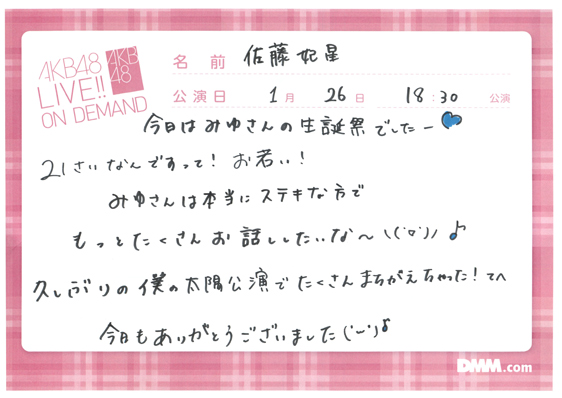 AKB48
LIVE!!
ON DEMAND
AKB
48
名前 佐藤妃星
公演日 1月 26日 18:30 公演
今日はみゆさんの生誕祭でしたー
21さいなんですって! お若い!
みゆさんは本当にステキな方で
もっとたくさんお話ししたいな〜 \(^o^)/ ♪
久しぶりの僕の太陽公演でたくさんまちがえちゃった!てへ
今日もありがとうございました(^-^)♪
DMM.com